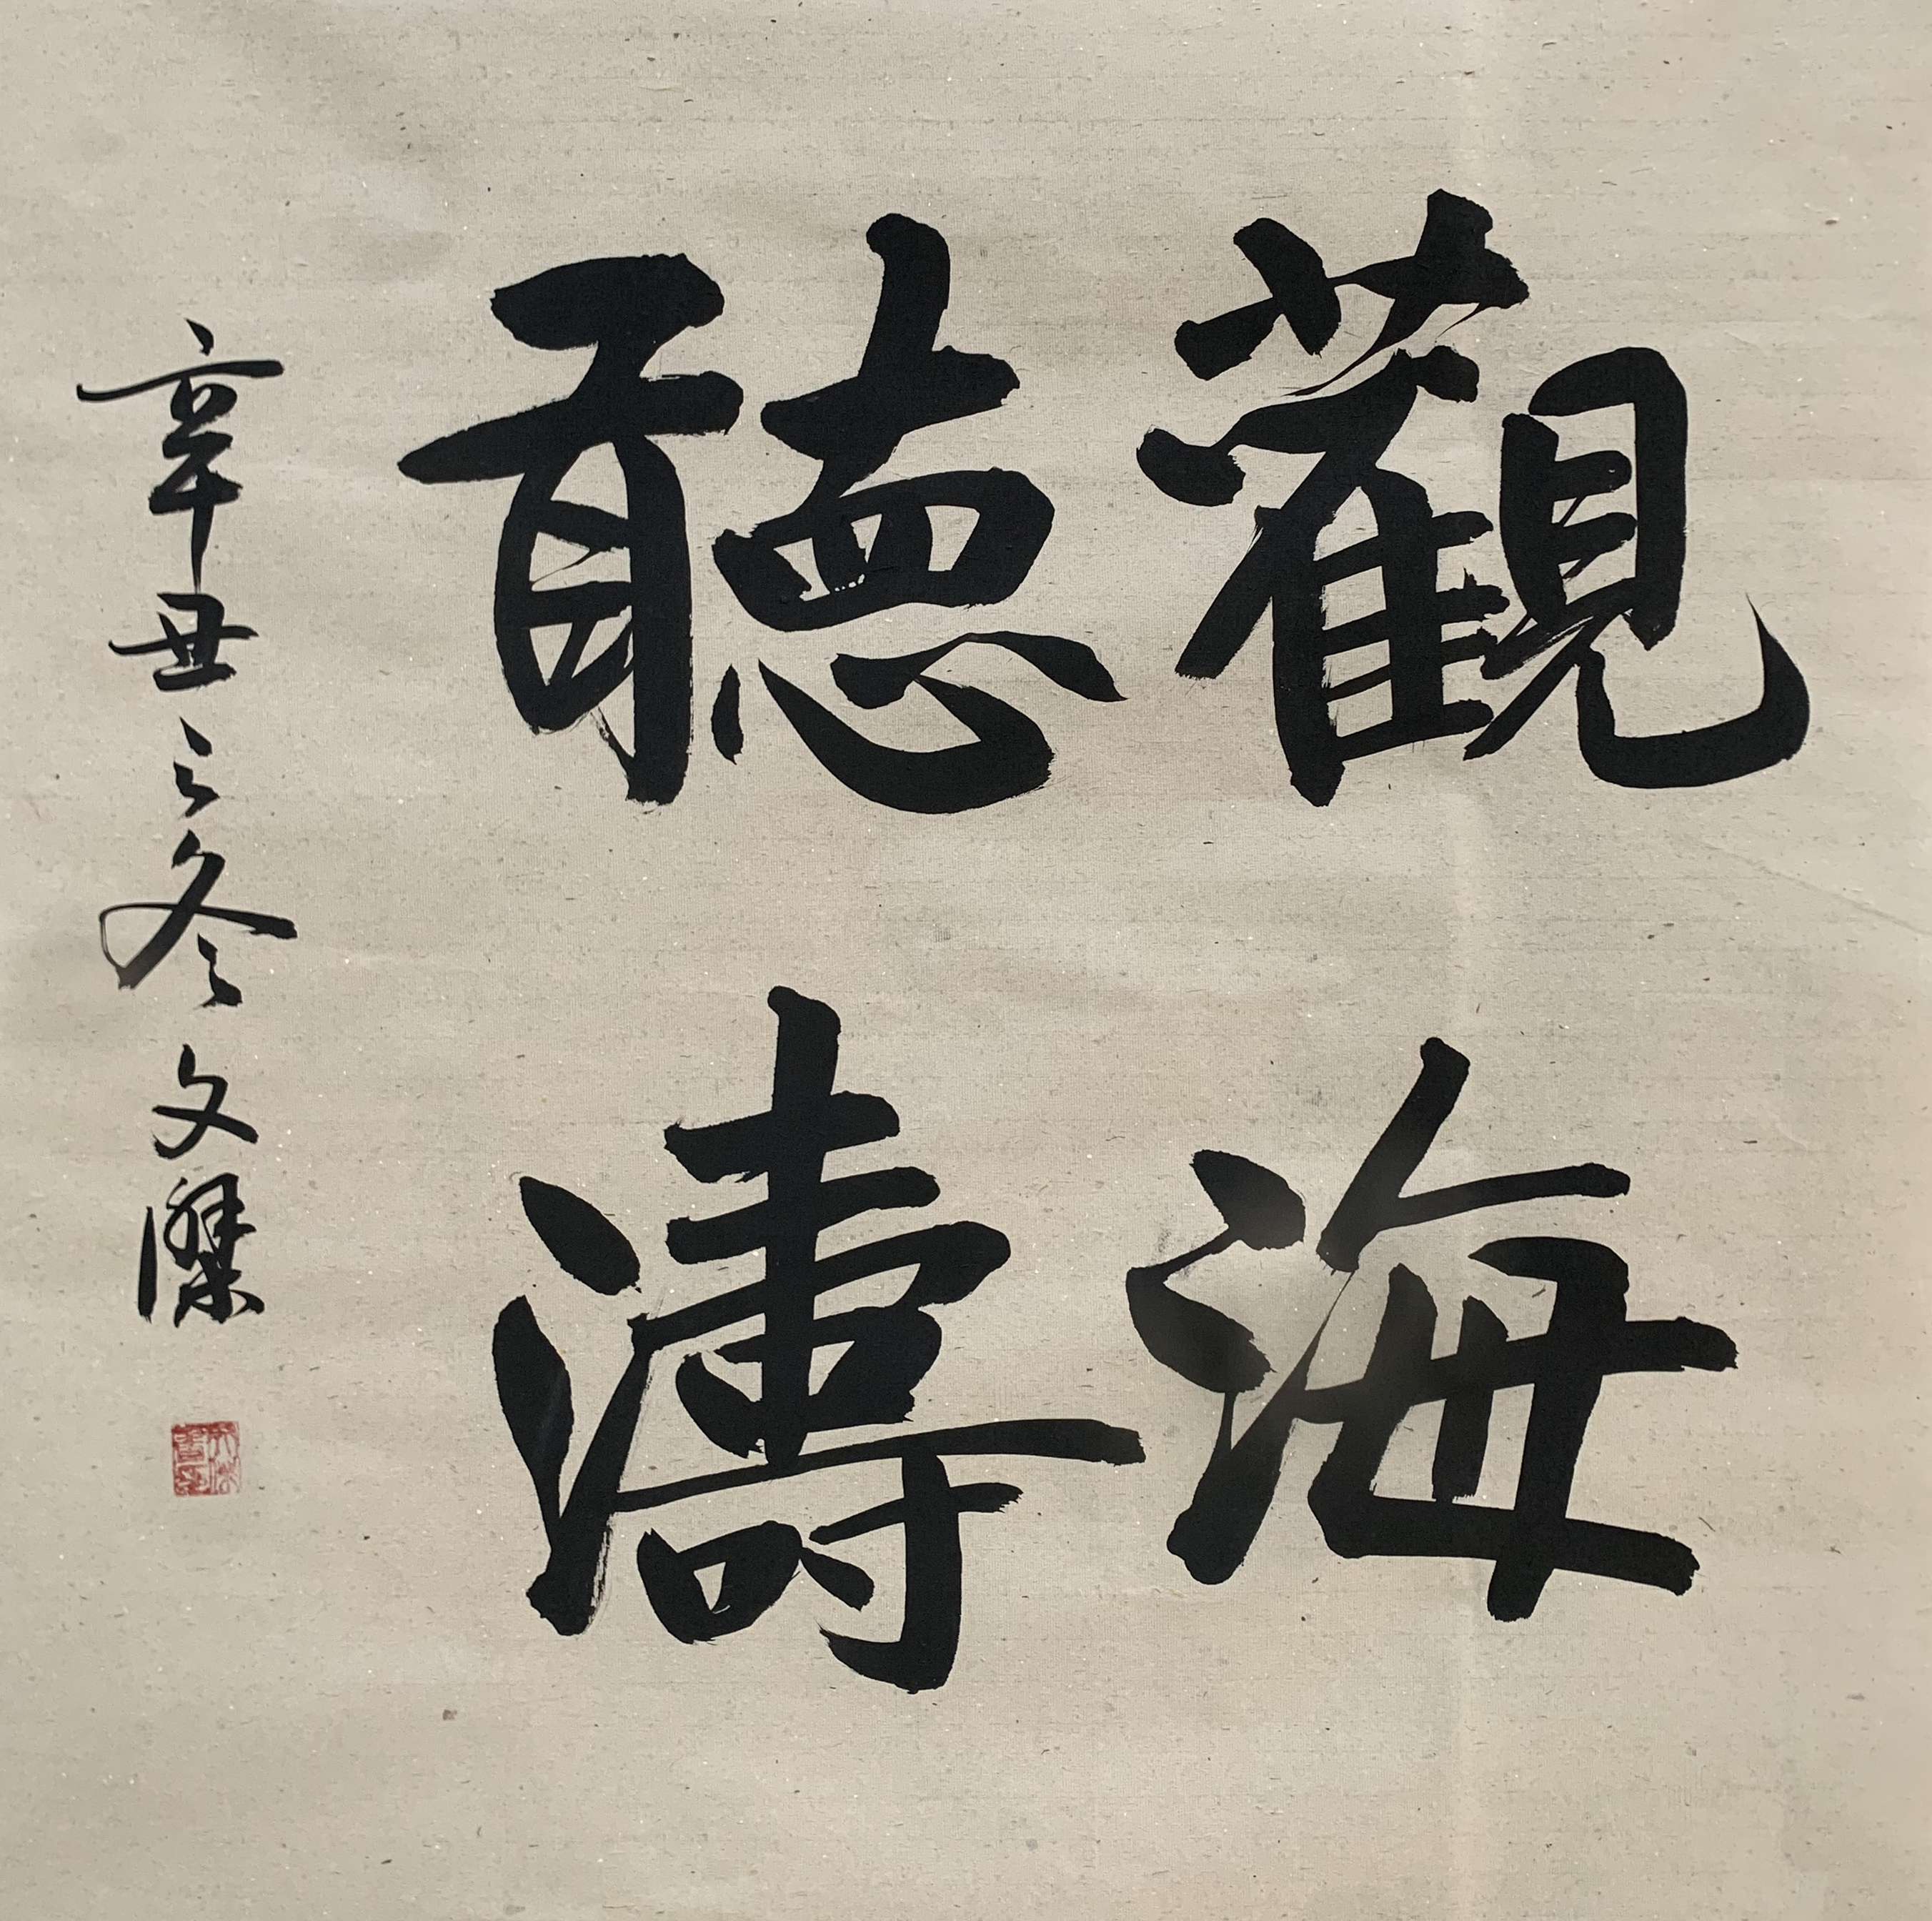 觀海
聽濤
辛丑之冬文傑